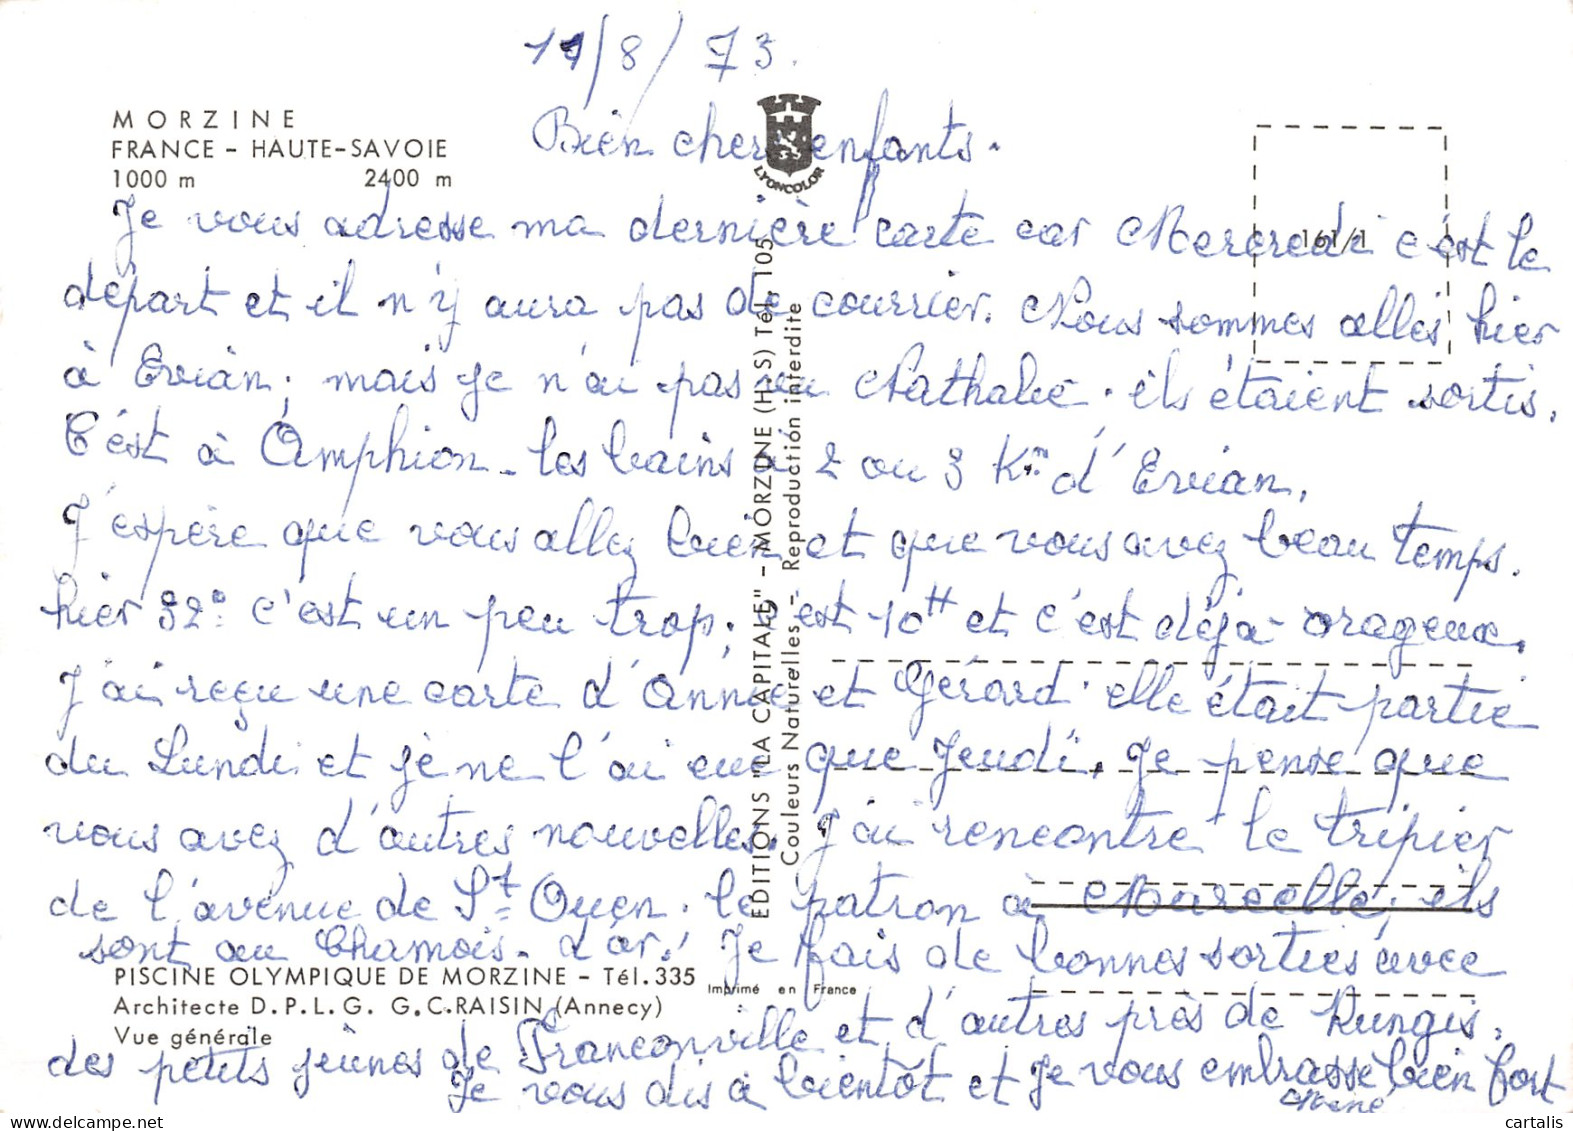 11/8/73.
MORZINE
FRANCE - HAUTE-SAVOIE
1000 m 2400 m
LYONCOLOR
161/1
Bien chers enfants.
Je vous adresse ma dernière carte car Mercredi c'est le
départ et il n'y aura pas de courrier. Nous sommes allés hier
à Evian, mais je n'ai pas vu Nathalie. ils étaient sortis.
C'est à Amphion-les bains à 2 ou 3 Km d'Evian.
J'espère que vous allez bien et que vous avez beau temps.
hier 32° c'est un peu trop, c'est 10H et c'est déjà orageux.
J'ai reçu une carte d'Annie et Gérard. elle était partie
du Lundi et je ne l'ai eue que Jeudi. Je pense que
vous avez d'autres nouvelles. J'ai rencontre le tripier
de l'avenue de St Ouen. le patron à Marcelle, ils
sont au Chamois-d'or. Je fais de bonnes sorties avec
des petits jeunes de Franconville et d'autres près de Rungis.
Je vous dis à bientôt et Je vous embrasse bien fort
Mémé
EDITIONS "LA CAPITALE" - MORZINE (H.-S) Tél. 105
Couleurs Naturelles - Reproduction interdite
PISCINE OLYMPIQUE DE MORZINE - Tél. 335
Architecte D.P.L.G. G.C.RAISIN (Annecy)
Vue générale
Imprimé en France
cartalis